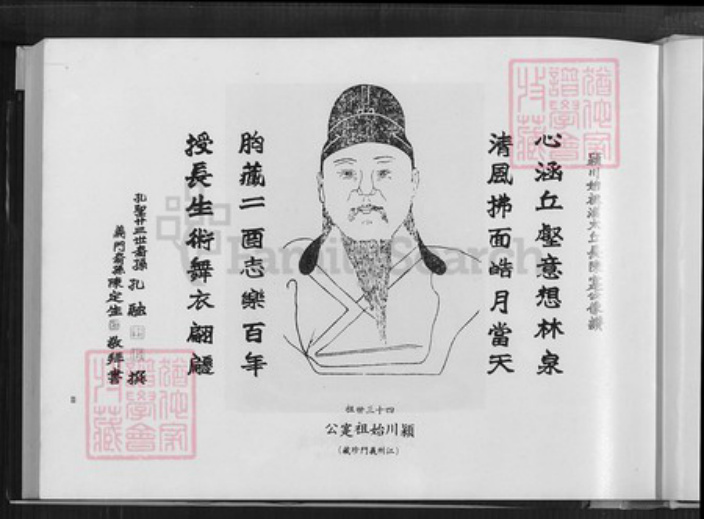 穎川始祖漢太丘長陳寔公像讚
心涵丘壑意想林泉
清風拂面皓月當天
胸藏二酉志樂百年
授長生術舞衣翩翩
孔聖廿世裔孫孔融撰
義門裔孫陳定生敬繹書
四十三世祖
穎川始祖寔公
(江州義門珍藏)
FamilySearch